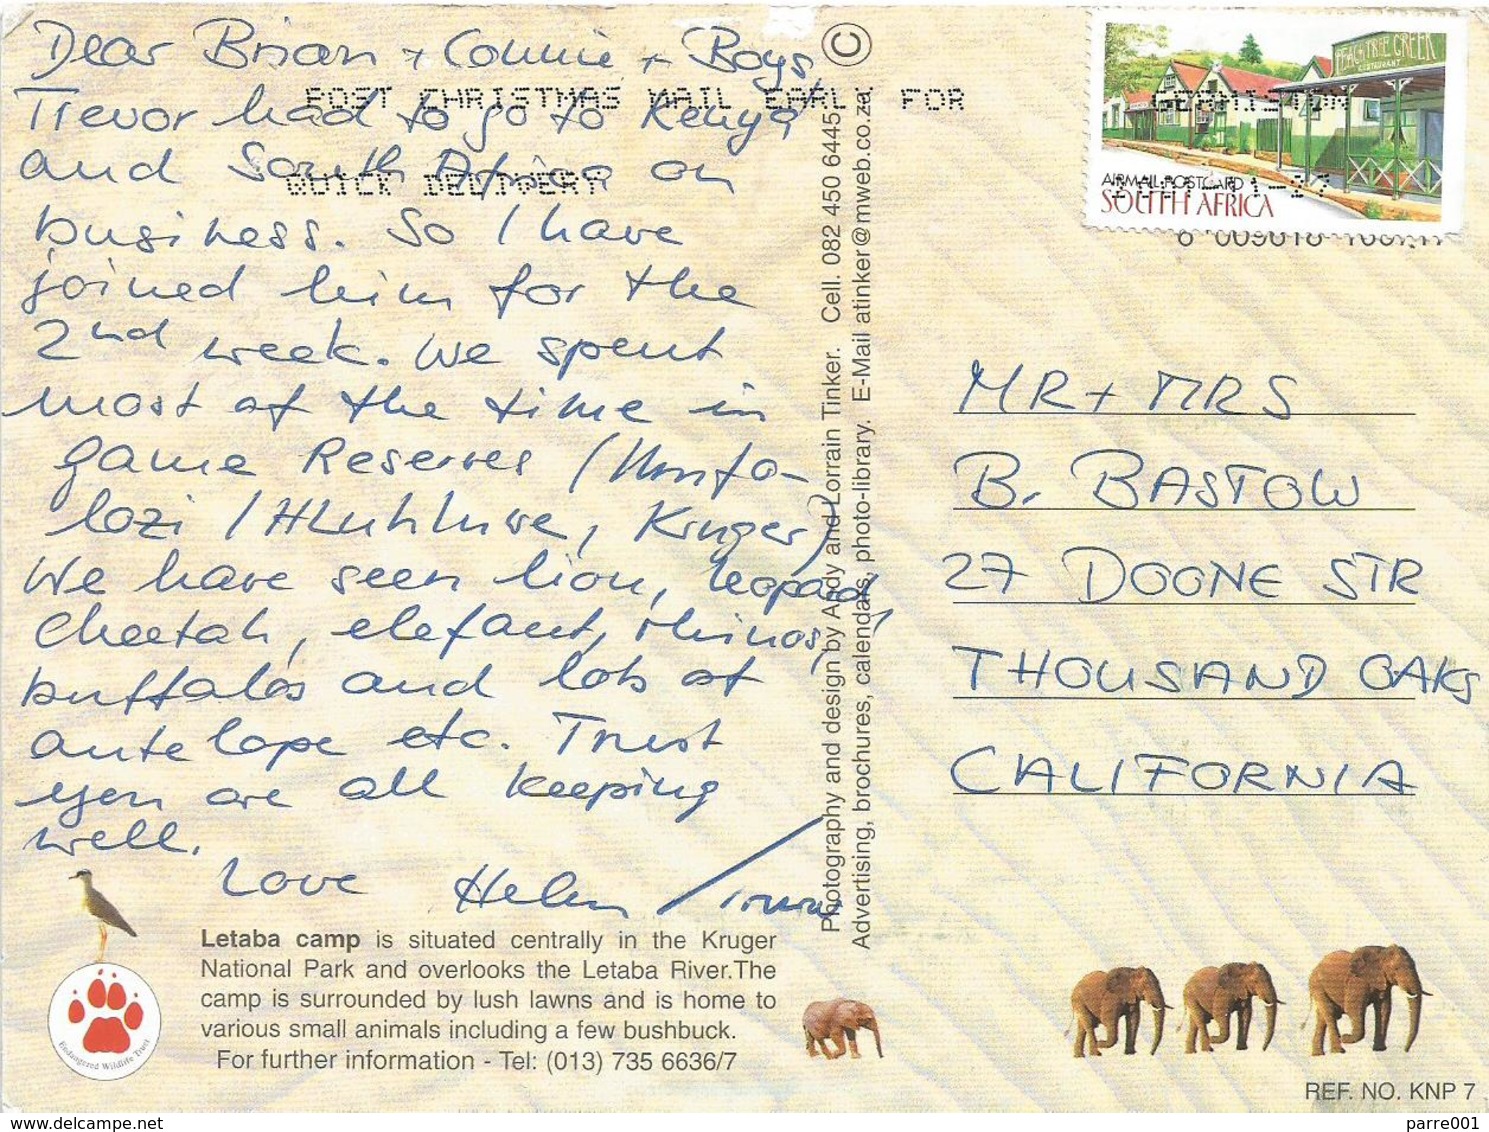 Dear Brian + Connie + Boys,
Trevor had to go to Kenya
and South Africa on
business. So I have
joined him for the
2nd week. We spent
most of the time in
game Reserves (Umfo-
lozi / Hluhluwe, Kruger)
We have seen lion, leopard,
cheetah, elefant, rhinos,
buffalos and lots of
antelope etc. Trust
you are all keeping
well.
Love Helen /
POST CHRISTMAS MAIL EARLY FOR
QUICK DELIVERY
Letaba camp is situated centrally in the Kruger
National Park and overlooks the Letaba River.The
camp is surrounded by lush lawns and is home to
various small animals including a few bushbuck.
For further information - Tel: (013) 735 6636/7
Endangered Wildlife Trust
©
Photography and design by Andy and Lorrain Tinker. Cell. 082 450 6445,
Advertising, brochures, calendars, photo-library. E-Mail atinker@mweb.co.za,
PEACH TREE CREEK
RESTAURANT
AIRMAIL POSTCARD
SOUTH AFRICA
MR + MRS
B. BASTOW
27 DOONE STR
THOUSAND OAKS
CALIFORNIA
REF. NO. KNP 7
delcampe.net
parre001